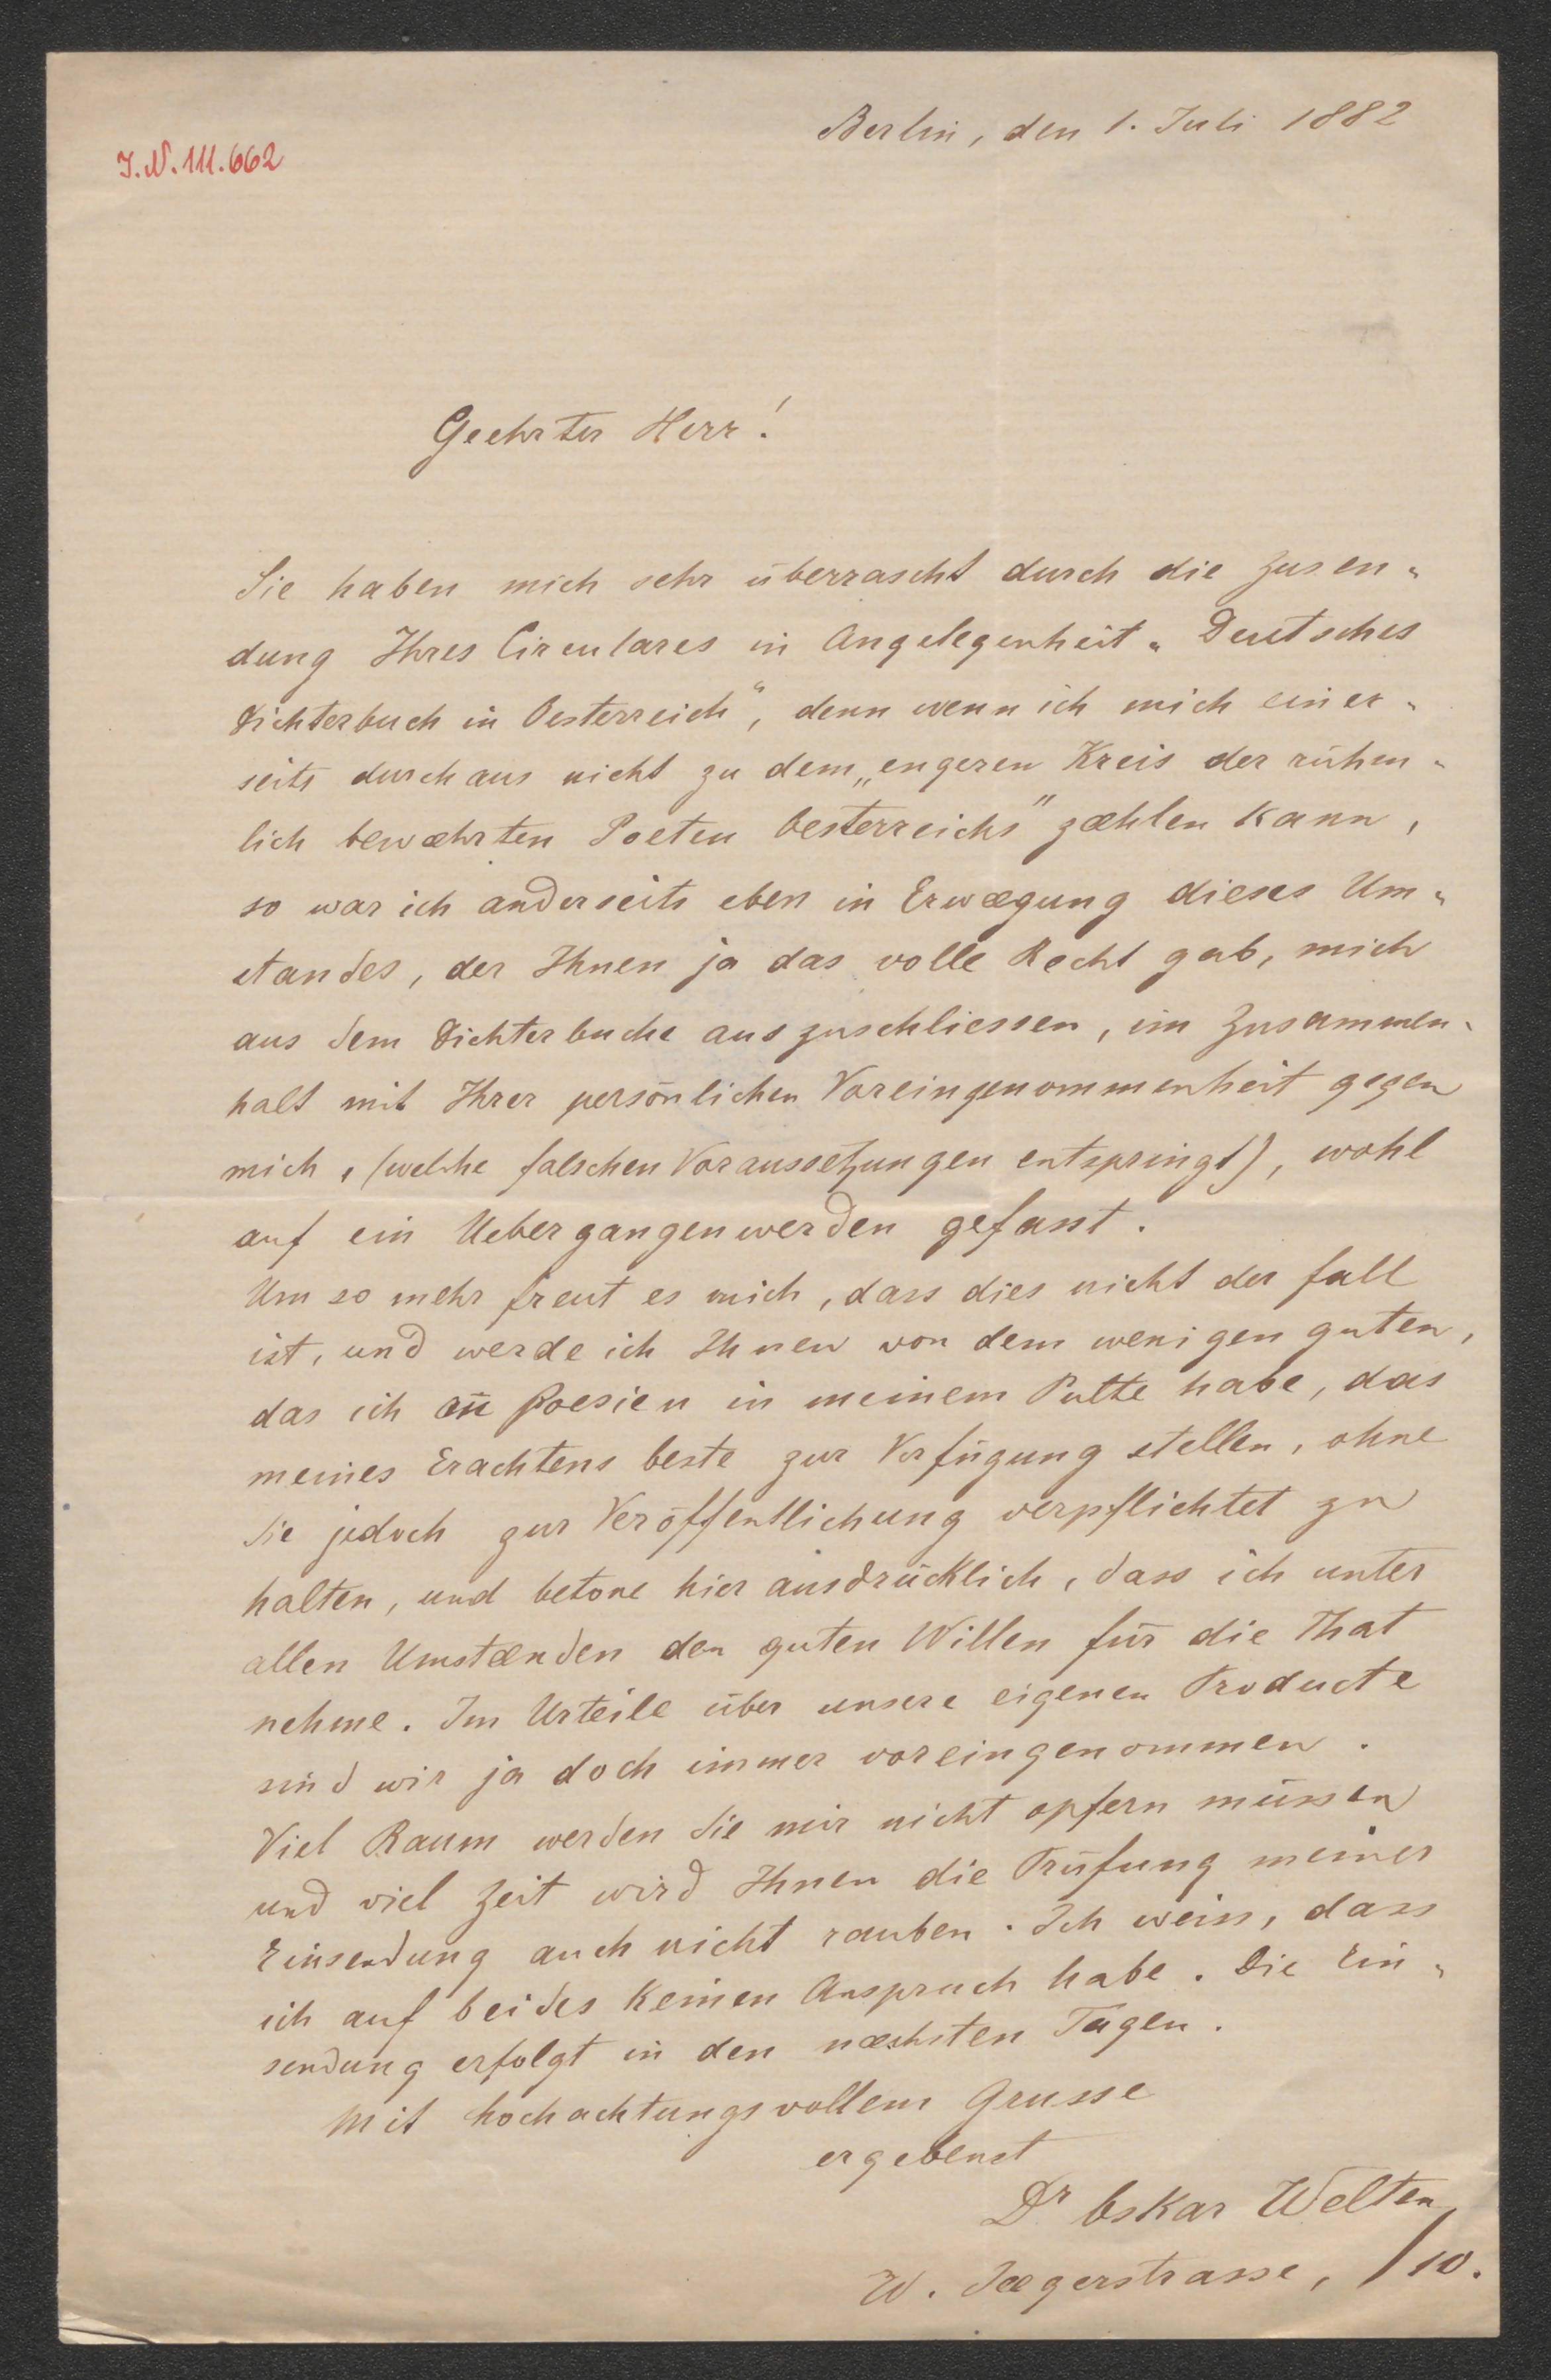 Berlin, den 1. Juli 1882
I.N. 111.662
Geehrter Herr!
Sie haben mich sehr überrascht durch die Zusen-
dung Ihres Circulares in Angelegenheit „Deutsches
Dichterbuch in Oesterreich“, denn wenn ich mich einer-
seits durchaus nicht zu dem „engeren Kreis der rühm-
lich bewæhrten Poeten Oesterreichs“ zæhlen kann,
so war ich anderseits eben in Erwægung dieses Um-
standes, der Ihnen ja das volle Recht gab, mich
aus dem Dichterbuche auszuschliessen, im Zusammen-
halt mit Ihrer persönlichen Voreingenommenheit gegen
mich, (welche falschen Voraussetzungen entspringt), wohl
auf ein Uebergangenwerden gefasst.
Um so mehr freut es mich, dass dies nicht der Fall
ist, und werde ich Ihnen von dem wenigen guten,
das ich an Poesien in meinem Pulte habe, das
meines Erachtens beste zur Verfügung stellen, ohne
Sie jedoch zur Veröffentlichung verpflichtet zu
halten, und betone hier ausdrücklich, dass ich unter
allen Umstænden den guten Willen für die That
nehme. Im Urteile über unsere eigenen Producte
sind wir ja doch immer voreingenommen.
Viel Raum werden Sie mir nicht opfern müssen
und viel Zeit wird Ihnen die Prüfung meiner
Einsendung auch nicht rauben. Ich weiss, dass
ich auf beides keinen Anspruch habe. Die Ein-
sendung erfolgt in den næchsten Tagen.
Mit hochachtungsvollem Grusse
ergebenst
Dr Oskar Welten
W. Jægerstrasse, /10.